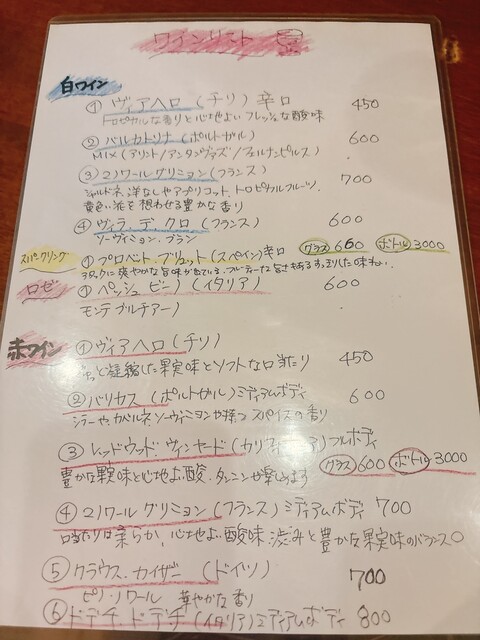 ワインリスト
白ワイン
① ヴィアヘロ (チリ) 辛口 450
トロピカルな香りと心地よいフレッシュな酸味
② バルカトリナ (ポルトガル) 600
MIX (アリント/アンタンヴァズ/フェルナンピルス)
③ 2ノワール グリミョン (フランス) 700
シャルドネ、洋なしやアプリコット、トロピカルフルーツ、
黄色い花を想わせる豊かな香り
④ ヴィラ デ クロ (フランス) 600
ソーヴィニョン ブラン
スパークリング ① プロベント ブリュット (スペイン) 辛口 グラス 660 ボトル 3000
爽やかな旨味が
ロゼ ① ペッシェ ビーノ (イタリア) 600
モンテプルチアーノ
赤ワイン
① ヴィアヘロ (チリ) 450
凝縮した果実味とソフトな口当たり
② バリカス (ポルトガル) ミディアムボディ 600
シラーや、カベルネソーヴィニヨンや持つ スパイスの香り
③ レッドウッド ヴィンヤード (カリフォルニア) フルボディ
豊かな果実味と心地よい酸、タンニンが楽しめます グラス 600 ボトル 3000
④ 2ノワール グリミョン (フランス) ミディアムボディ 700
口当たりは柔らか、心地よい酸味 渋みと豊かな果実味のバランス〇
⑤ クラウス カイザー (ドイツ) 700
ピノ・ノワール 華やかな香り
⑥ ドデチ ドデチ (イタリア) ミディアムボディ 800